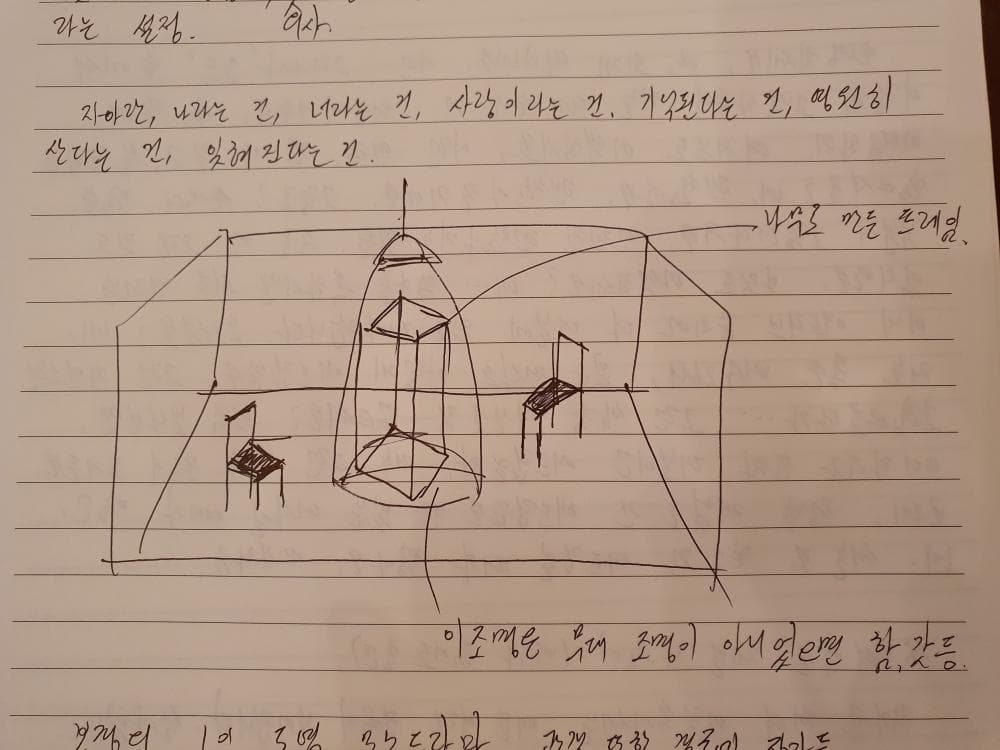 라는 설정. 의사.
자아란, 나라는 건, 너라는 건, 사랑이라는 건. 기억된다는 건, 영원히
산다는 건, 잊혀진다는 건.
나무로 만든 프레임.
이 조명은 무대 조명이 아니었으면 함, 갓등.